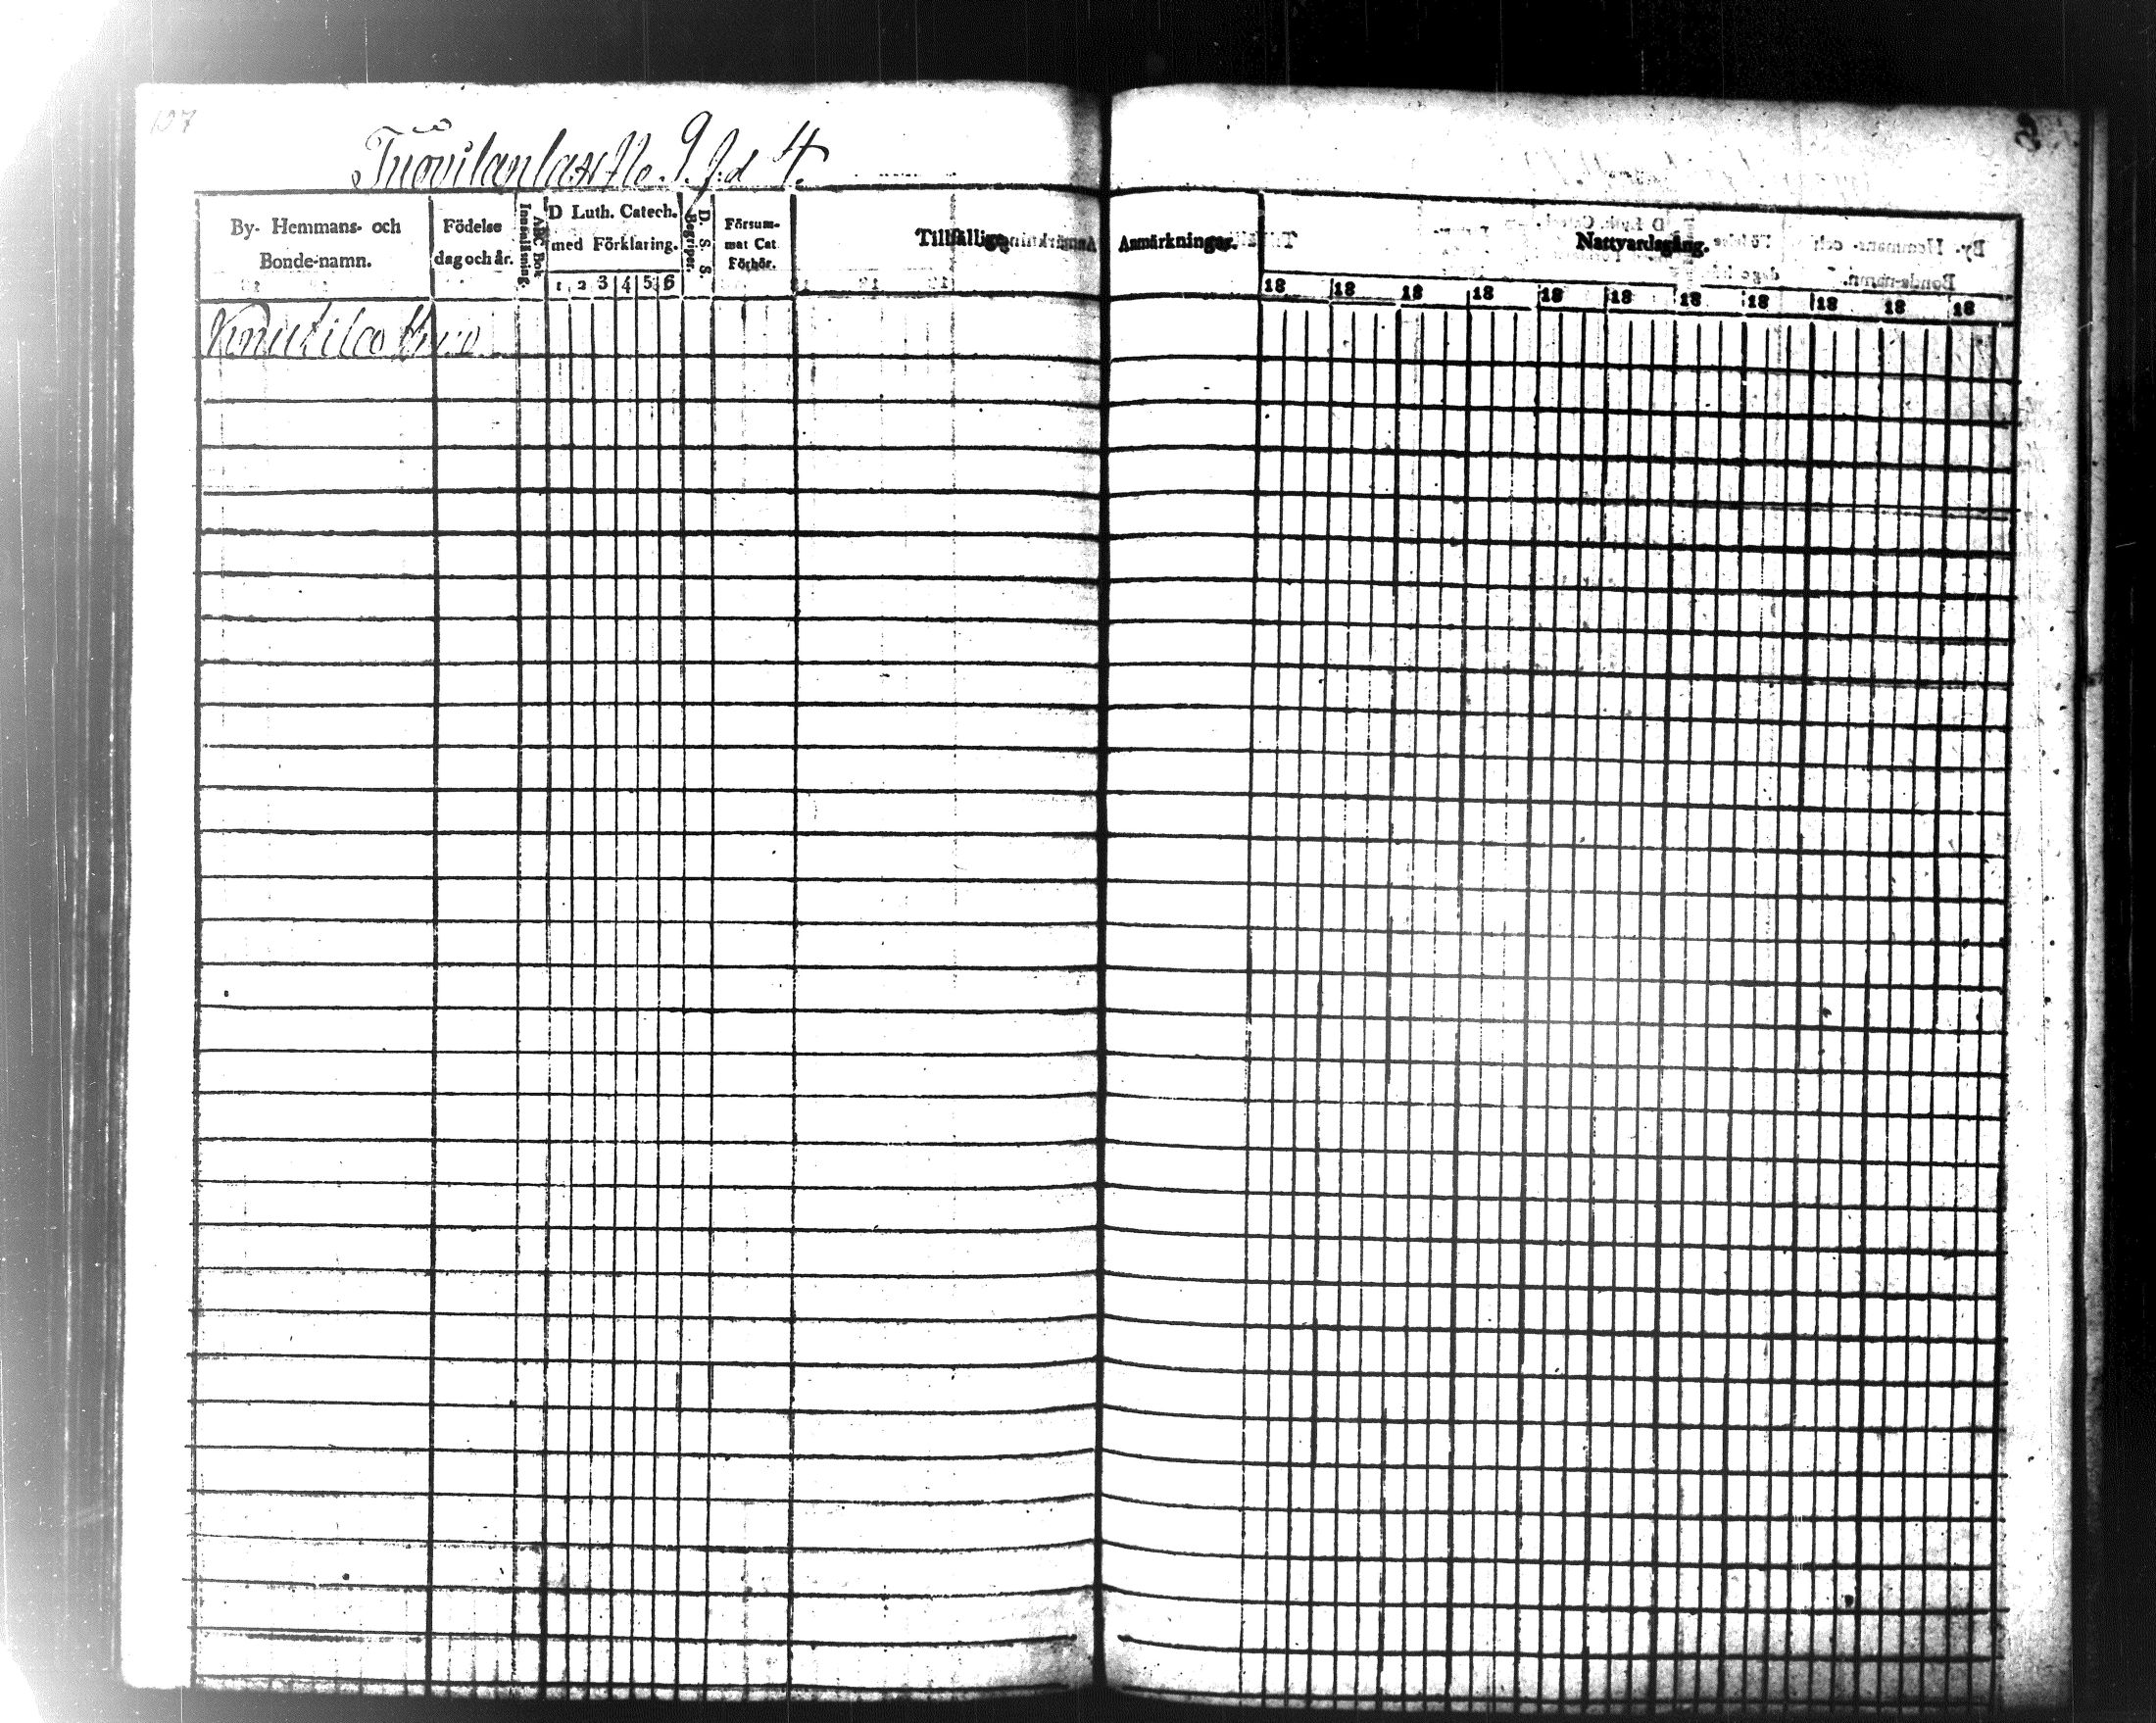 107
Tuovilanlax No. 9. f.d 4.
By- Hemmans- och Bonde-namn.
Födelse dag och år.
ABC Bok Innanläsning.
D Luth. Catech. med Förklaring.
1 2 3 4 5 6
D. S. S. Begriper.
Försum-mat Cat. Förhör.
Tillfällige
Anmärkningar.
Nattvardsgång.
18 18 18 18 18 18 18 18 18 18 18